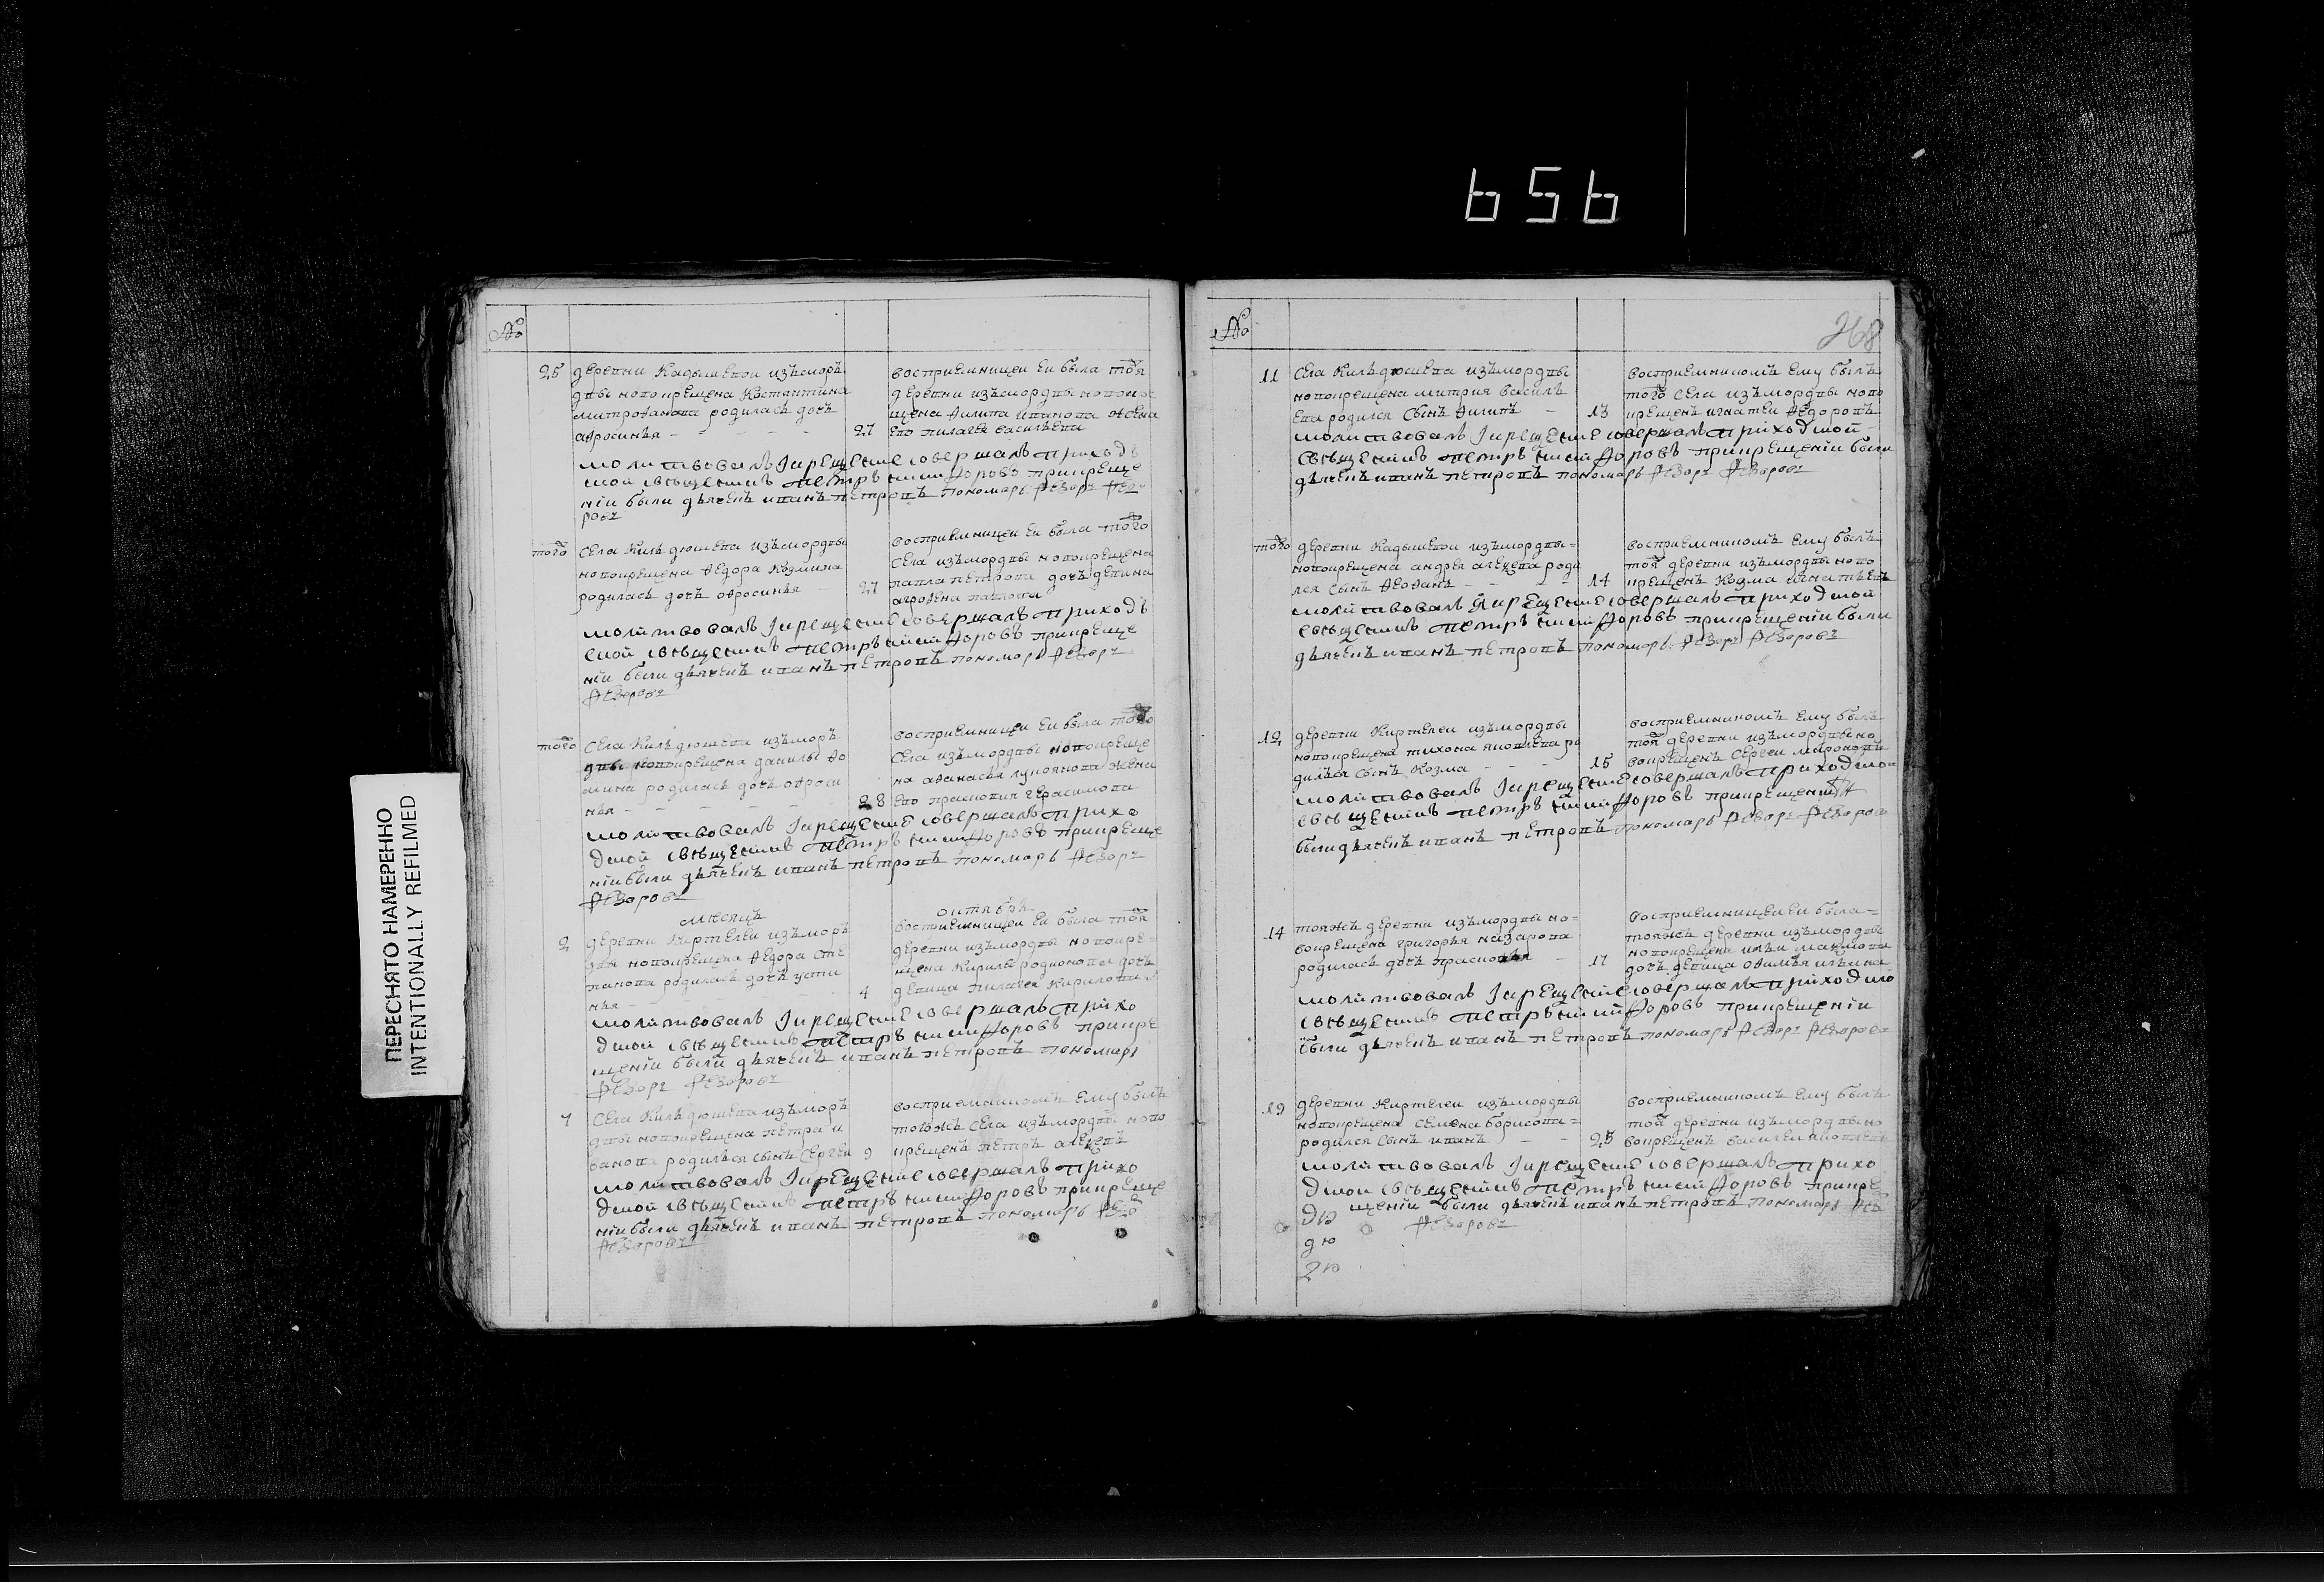 656
ПЕРЕСНЯТО НАМЕРЕННО
INTENTIONALLY REFILMED
№
25 деревни Кадышевои изъморъ
двы новокрещена Костянтина
митрофанова родилась дочь
афросинья 27
восприемницеи еи была тоя
деревни изъмордвы новокре
щена Филипа иванова жена
ево пилагея васильева
молитвовалъ Iкрещение совершалъ приход
ской священникъ петръ никифоровъ прикреще
нiи были дьячекъ иванъ петровъ пономарь Федоръ Фед
ровъ
того Села Кильдюшева изъмордвы
новокрещена Федора Козмина
родилась дочь афросинья 27
восприемницеи еи была того
Села изъмордвы новокрещена
павла петрова дочь девка
агрофена павлова
молитвовалъ Iкрещение совершалъ приход
ской священникъ петръ никифоровъ прикреще
нiи были дьячекъ иванъ петровъ пономарь Федоръ
Федоровъ
того Села Кильдюшева изъморъ
двы новокрещена данилы Фо
мина родилась дочь афроси
нья 28
восприемницеи еи была того
Села изъмордвы новокреще
на афанасья лукоянова жена
ево прасковия герасимова
молитвовалъ Iкрещение совершалъ прихо
дской священникъ петръ никифоровъ прикреще
нiи были дьячекъ иванъ петровъ пономарь Федоръ
Федоровъ
месяцъ октябрь
2 деревни Киртелеи изъморъ
двы новокрещена Федора сте
панова родилась дочь усти
нья 4
восприемницеи еи была тоя
деревни изъмордвы новокре
щена Кирилы родионова дочь
девица пилагея Кирилова
молитвовалъ Iкрещение совершалъ прихо
дской священникъ петръ никифоровъ прикре
щенiи были дьячекъ иванъ петровъ пономарь
Федоръ Федоровъ
7 Села Кильдюшева изъморъ
двы новокрещена петра и
ванова родилъся сынъ Сергеи 9
восприемникомъ ему былъ
тогожъ Села изъмордвы ново
крещенъ петръ алексеевъ
молитвовалъ Iкрещение совершалъ прихо
дской священникъ петръ никифоровъ прикреще
нiи были дьячекъ иванъ петровъ пономарь Фед
Федоровъ
№
268
11 Села Кильдюшева изъмордвы
новокрещена митрия василь
ева родился Сынъ Филипъ 13
восприемникомъ ему былъ
того Села изъмордвы ново
крещенъ игнатеи Федоровъ
молитвовалъ Iкрещение совершалъ приходской
священникъ петръ никифоровъ прикрещенiи были
дьячекъ иванъ петровъ пономарь Федоръ Федоровъ
того деревни Кадышевои изъмордвы
новокрещена андрея алексеева роди
лся сынъ Феофанъ 14
восприемникомъ ему былъ
тоя деревни изъмордвы ново
крещенъ Козма игнатьевъ
молитвовалъ Iкрещение совершалъ приходской
священникъ петръ никифоровъ прикрещенiи были
дьячекъ иванъ петровъ пономарь Федоръ Федоровъ
12 деревни Киртелеи изъмордвы
новокрещена тихона яковлева ро
дилъся сынъ Козма 15
восприемникомъ ему былъ
тоя деревни изъмордвы но
вокрещенъ Сергеи мироновъ
молитвовалъ Iкрещение совершалъ приходско
священникъ петръ никифоровъ прикрещенiи
были дьячекъ иванъ петровъ пономарь Федоръ Федоров
14 тояжъ деревни изъмордвы но
вокрещена григорья назарова
родилась дочь прасковья 17
восприемницеи еи была
тояжъ деревни изъмордвы
новокрещена ильи
дочь девица офимья ильина
молитвовалъ Iкрещение совершалъ приходско
священникъ петръ никифоровъ прикрещенiи
были дьячекъ иванъ петровъ пономарь Федоръ Федоров
19 деревни Киртелеи изъмордвы
новокрещена семена борисова
родился сынъ иванъ 25
восприемникомъ ему былъ
тои деревни изъмордвы но
вокрещенъ василеи яковлевъ
молитвовалъ Iкрещение совершалъ прихо
дской священникъ петръ никифоровъ прикре
щенiи были дьячекъ иванъ петровъ пономарь Фед
Федоровъ
дю
дю